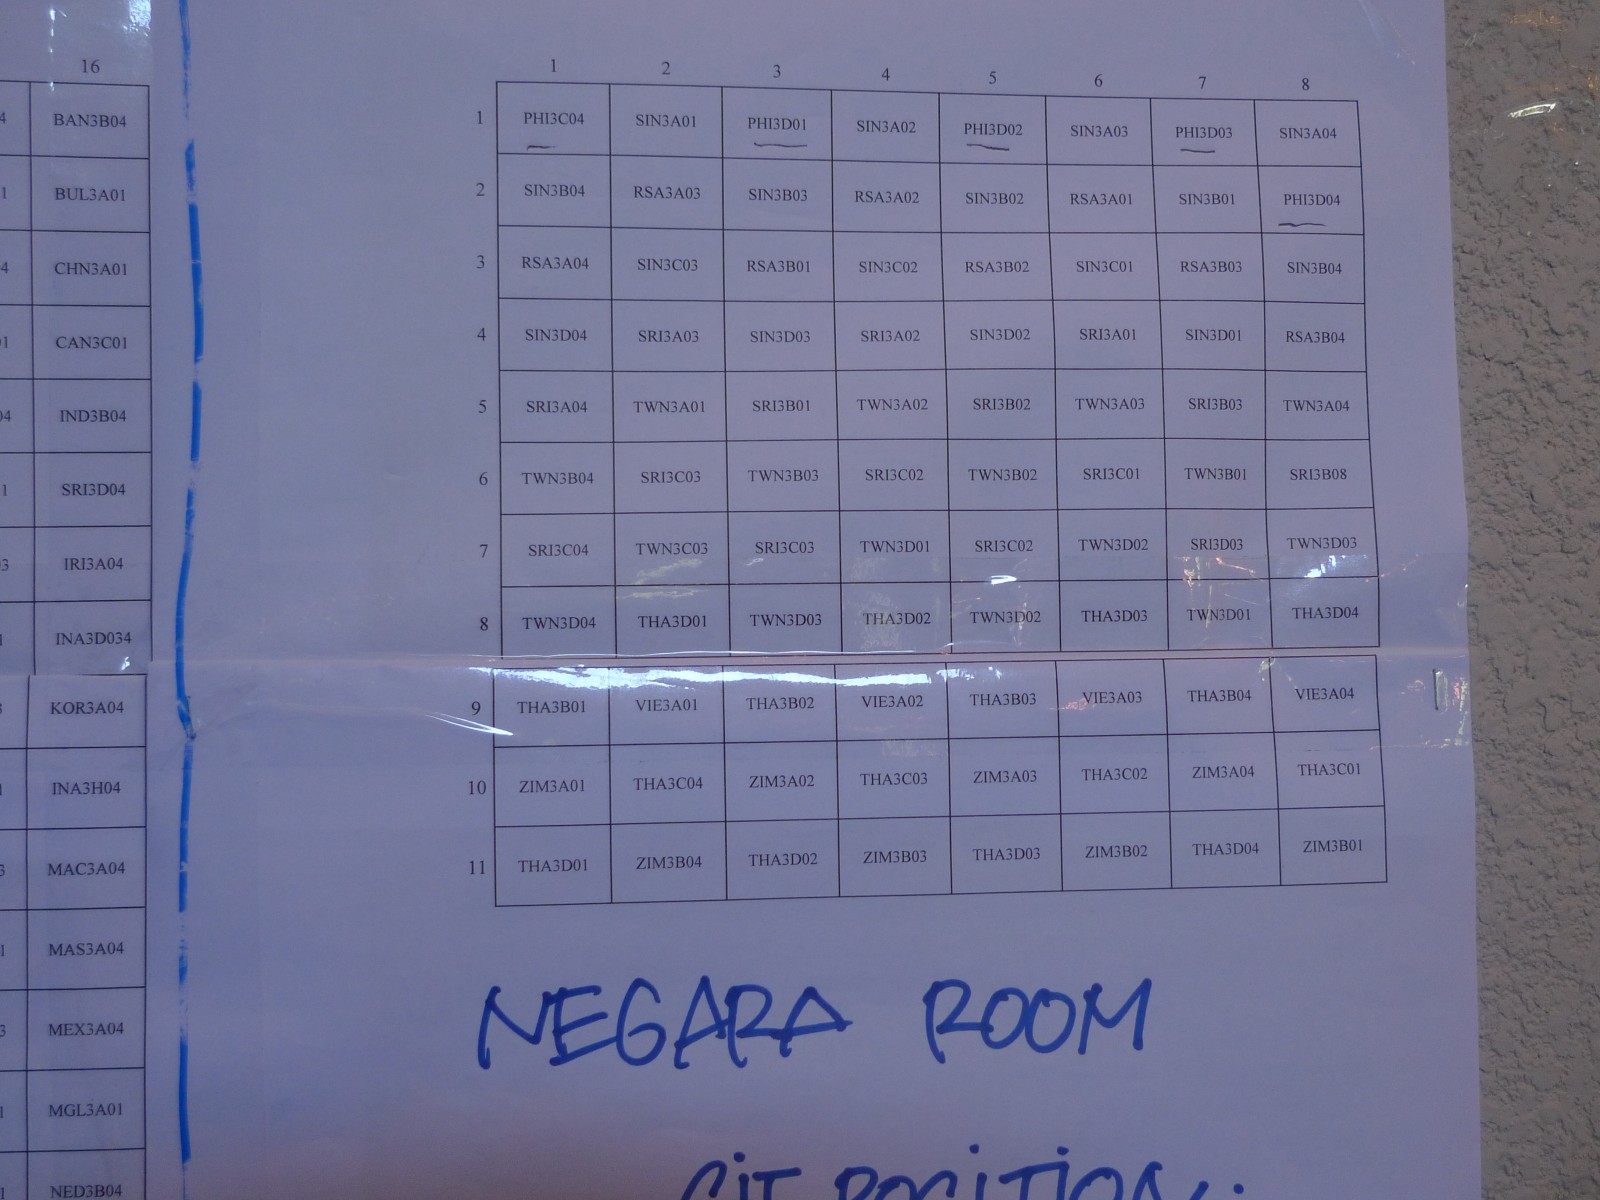 16
BAN3B04
BUL3A01
CHN3A01
CAN3C01
IND3B04
SRI3D04
IRI3A04
INA3D034
KOR3A04
INA3H04
MAC3A04
MAS3A04
MEX3A04
MGL3A01
NED3B04
1 2 3 4 5 6 7 8
1 PHI3C04 SIN3A01 PHI3D01 SIN3A02 PHI3D02 SIN3A03 PHI3D03 SIN3A04
2 SIN3B04 RSA3A03 SIN3B03 RSA3A02 SIN3B02 RSA3A01 SIN3B01 PHI3D04
3 RSA3A04 SIN3C03 RSA3B01 SIN3C02 RSA3B02 SIN3C01 RSA3B03 SIN3B04
4 SIN3D04 SRI3A03 SIN3D03 SRI3A02 SIN3D02 SRI3A01 SIN3D01 RSA3B04
5 SRI3A04 TWN3A01 SRI3B01 TWN3A02 SRI3B02 TWN3A03 SRI3B03 TWN3A04
6 TWN3B04 SRI3C03 TWN3B03 SRI3C02 TWN3B02 SRI3C01 TWN3B01 SRI3B08
7 SRI3C04 TWN3C03 SRI3C03 TWN3D01 SRI3C02 TWN3D02 SRI3D03 TWN3D03
8 TWN3D04 THA3D01 TWN3D03 THA3D02 TWN3D02 THA3D03 TWN3D01 THA3D04
9 THA3B01 VIE3A01 THA3B02 VIE3A02 THA3B03 VIE3A03 THA3B04 VIE3A04
10 ZIM3A01 THA3C04 ZIM3A02 THA3C03 ZIM3A03 THA3C02 ZIM3A04 THA3C01
11 THA3D01 ZIM3B04 THA3D02 ZIM3B03 THA3D03 ZIM3B02 THA3D04 ZIM3B01
NEGARA ROOM
SIT POSITION: